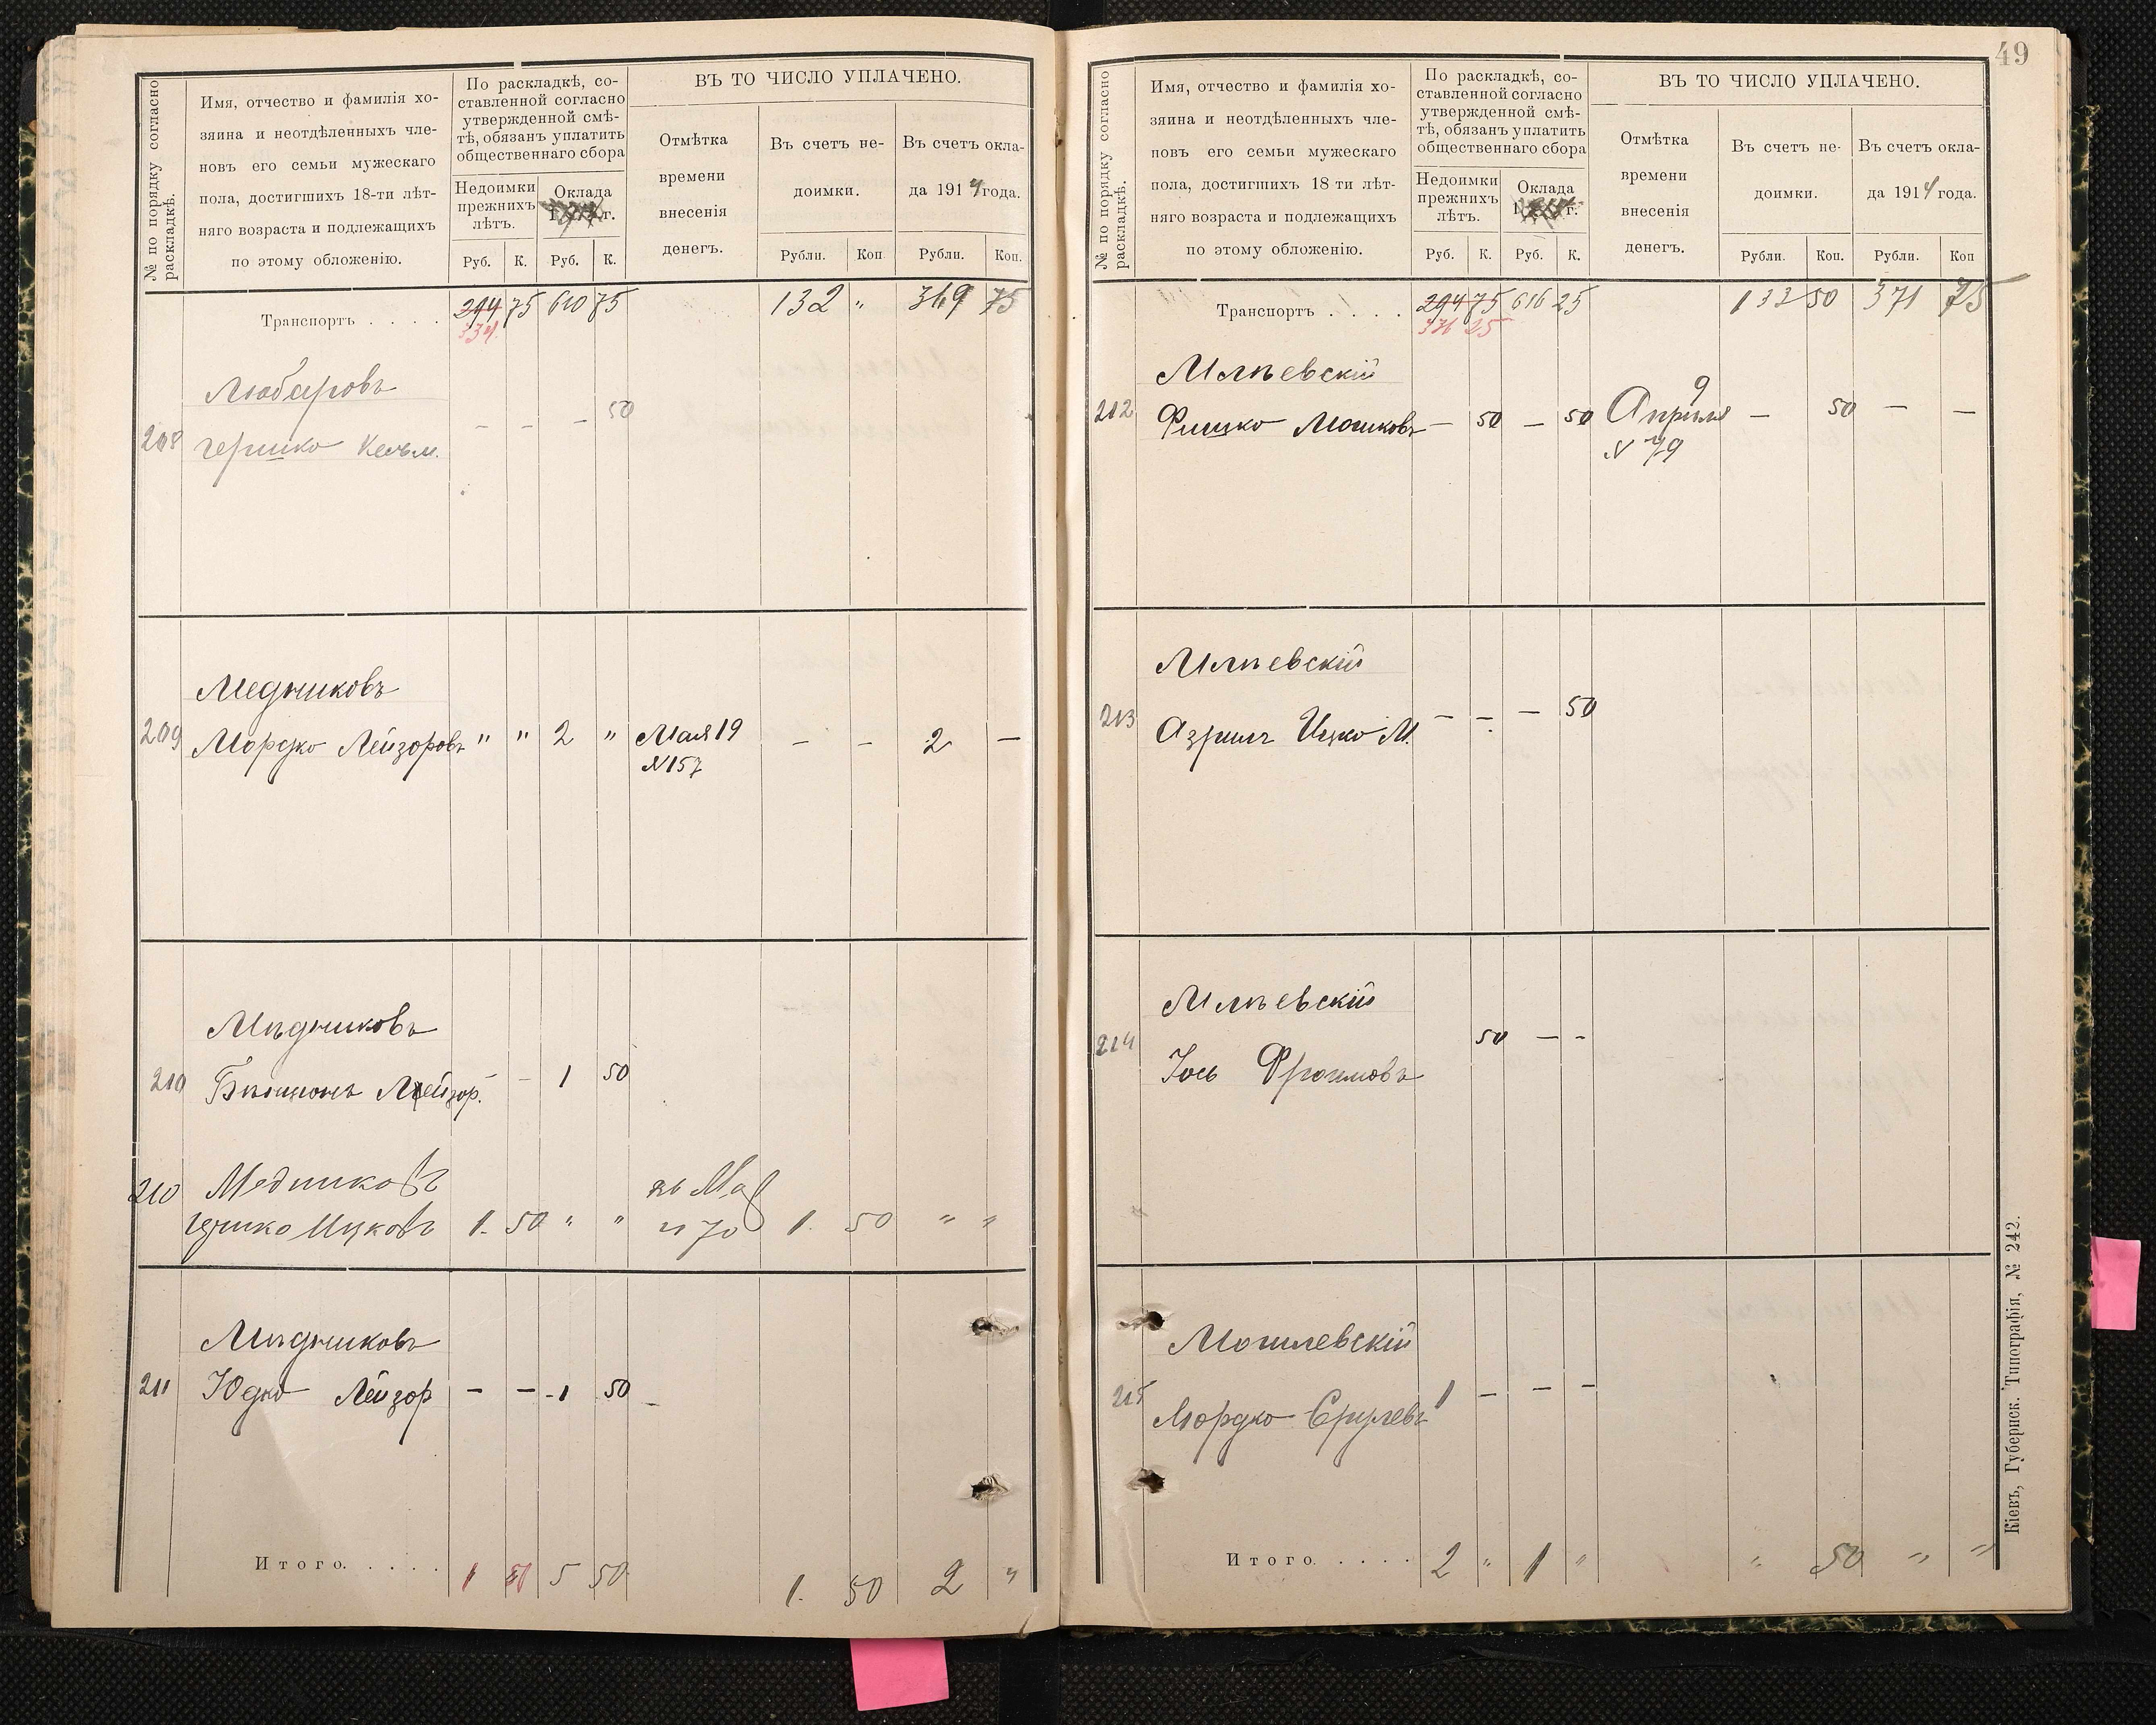 № по порядку согласно раскладкѣ.
Имя, отчество и фамилія хо-
зяина и неотдѣленныхъ чле-
новъ его семьи мужескаго
пола, достигшихъ 18-ти лѣт-
няго возраста и подлежащихъ
по этому обложенію.
По раскладкѣ, со-
ставленной согласно
утвержденной смѣ-
тѣ, обязанъ уплатить
общественнаго сбора
Недоимки
прежнихъ
лѣтъ.
Оклада
г.
Руб. К. Руб. К.
ВЪ ТО ЧИСЛО УПЛАЧЕНО.
Отмѣтка
времени
внесенія
денегъ.
Въ счетъ не-
доимки.
Рубли. Коп
Въ счетъ окла-
да 1914 года.
Рубли. Коп.
Транспортъ . . . . 294 75 610 75 132 " 369 75
334
Любаровъ
208 Гершко - - - 50
Медниковъ
209 Мордко Лейзоровъ " " 2 " Мая 19 - - 2 -
N 157
Мѣдниковъ
210 Лейзор. - 1 50
210 Медниковъ
Ицковъ 1. 50 " " 70 1. 50 " "
Мѣдниковъ
211 Юдко Лейзор - - - 1 50 -
Итого. . . . . 1 50 5 50 1. 50 2 "
49
№ по порядку согласно раскладкѣ.
Имя, отчество и фамилія хо-
зяина и неотдѣленныхъ чле-
новъ его семьи мужескаго
пола, достигшихъ 18 ти лѣт-
няго возраста и подлежащихъ
по этому обложенію.
По раскладкѣ, со-
ставленной согласно
утвержденной смѣ-
тѣ, обязанъ уплатить
общественнаго сбора
Недоимки
прежнихъ
лѣтъ.
Оклада
г.
Руб. К. Руб. К.
ВЪ ТО ЧИСЛО УПЛАЧЕНО.
Отмѣтка
времени
внесенія
денегъ.
Въ счетъ не-
доимки.
Рубли. Коп.
Въ счетъ окла-
да 1914 года.
Рубли. Коп
Транспортъ . . . . 294 75 616 25 133 50 371 75
336 25
Млѣевскій
212 Фишко Мошковъ - 50 - 50 Апрѣля 9 - 50 - -
N 79
Млѣевскій
213 Азрилъ Ицко М. - - - 50
Млѣевскій
214 50 - -
Іось Фроимовъ
Могилевскій
215 1 - - -
Мордко Срулевъ
Итого. . . . . 2 " 1 " " 50 " "
Кіевъ, Губернск. Типографія, № 242.